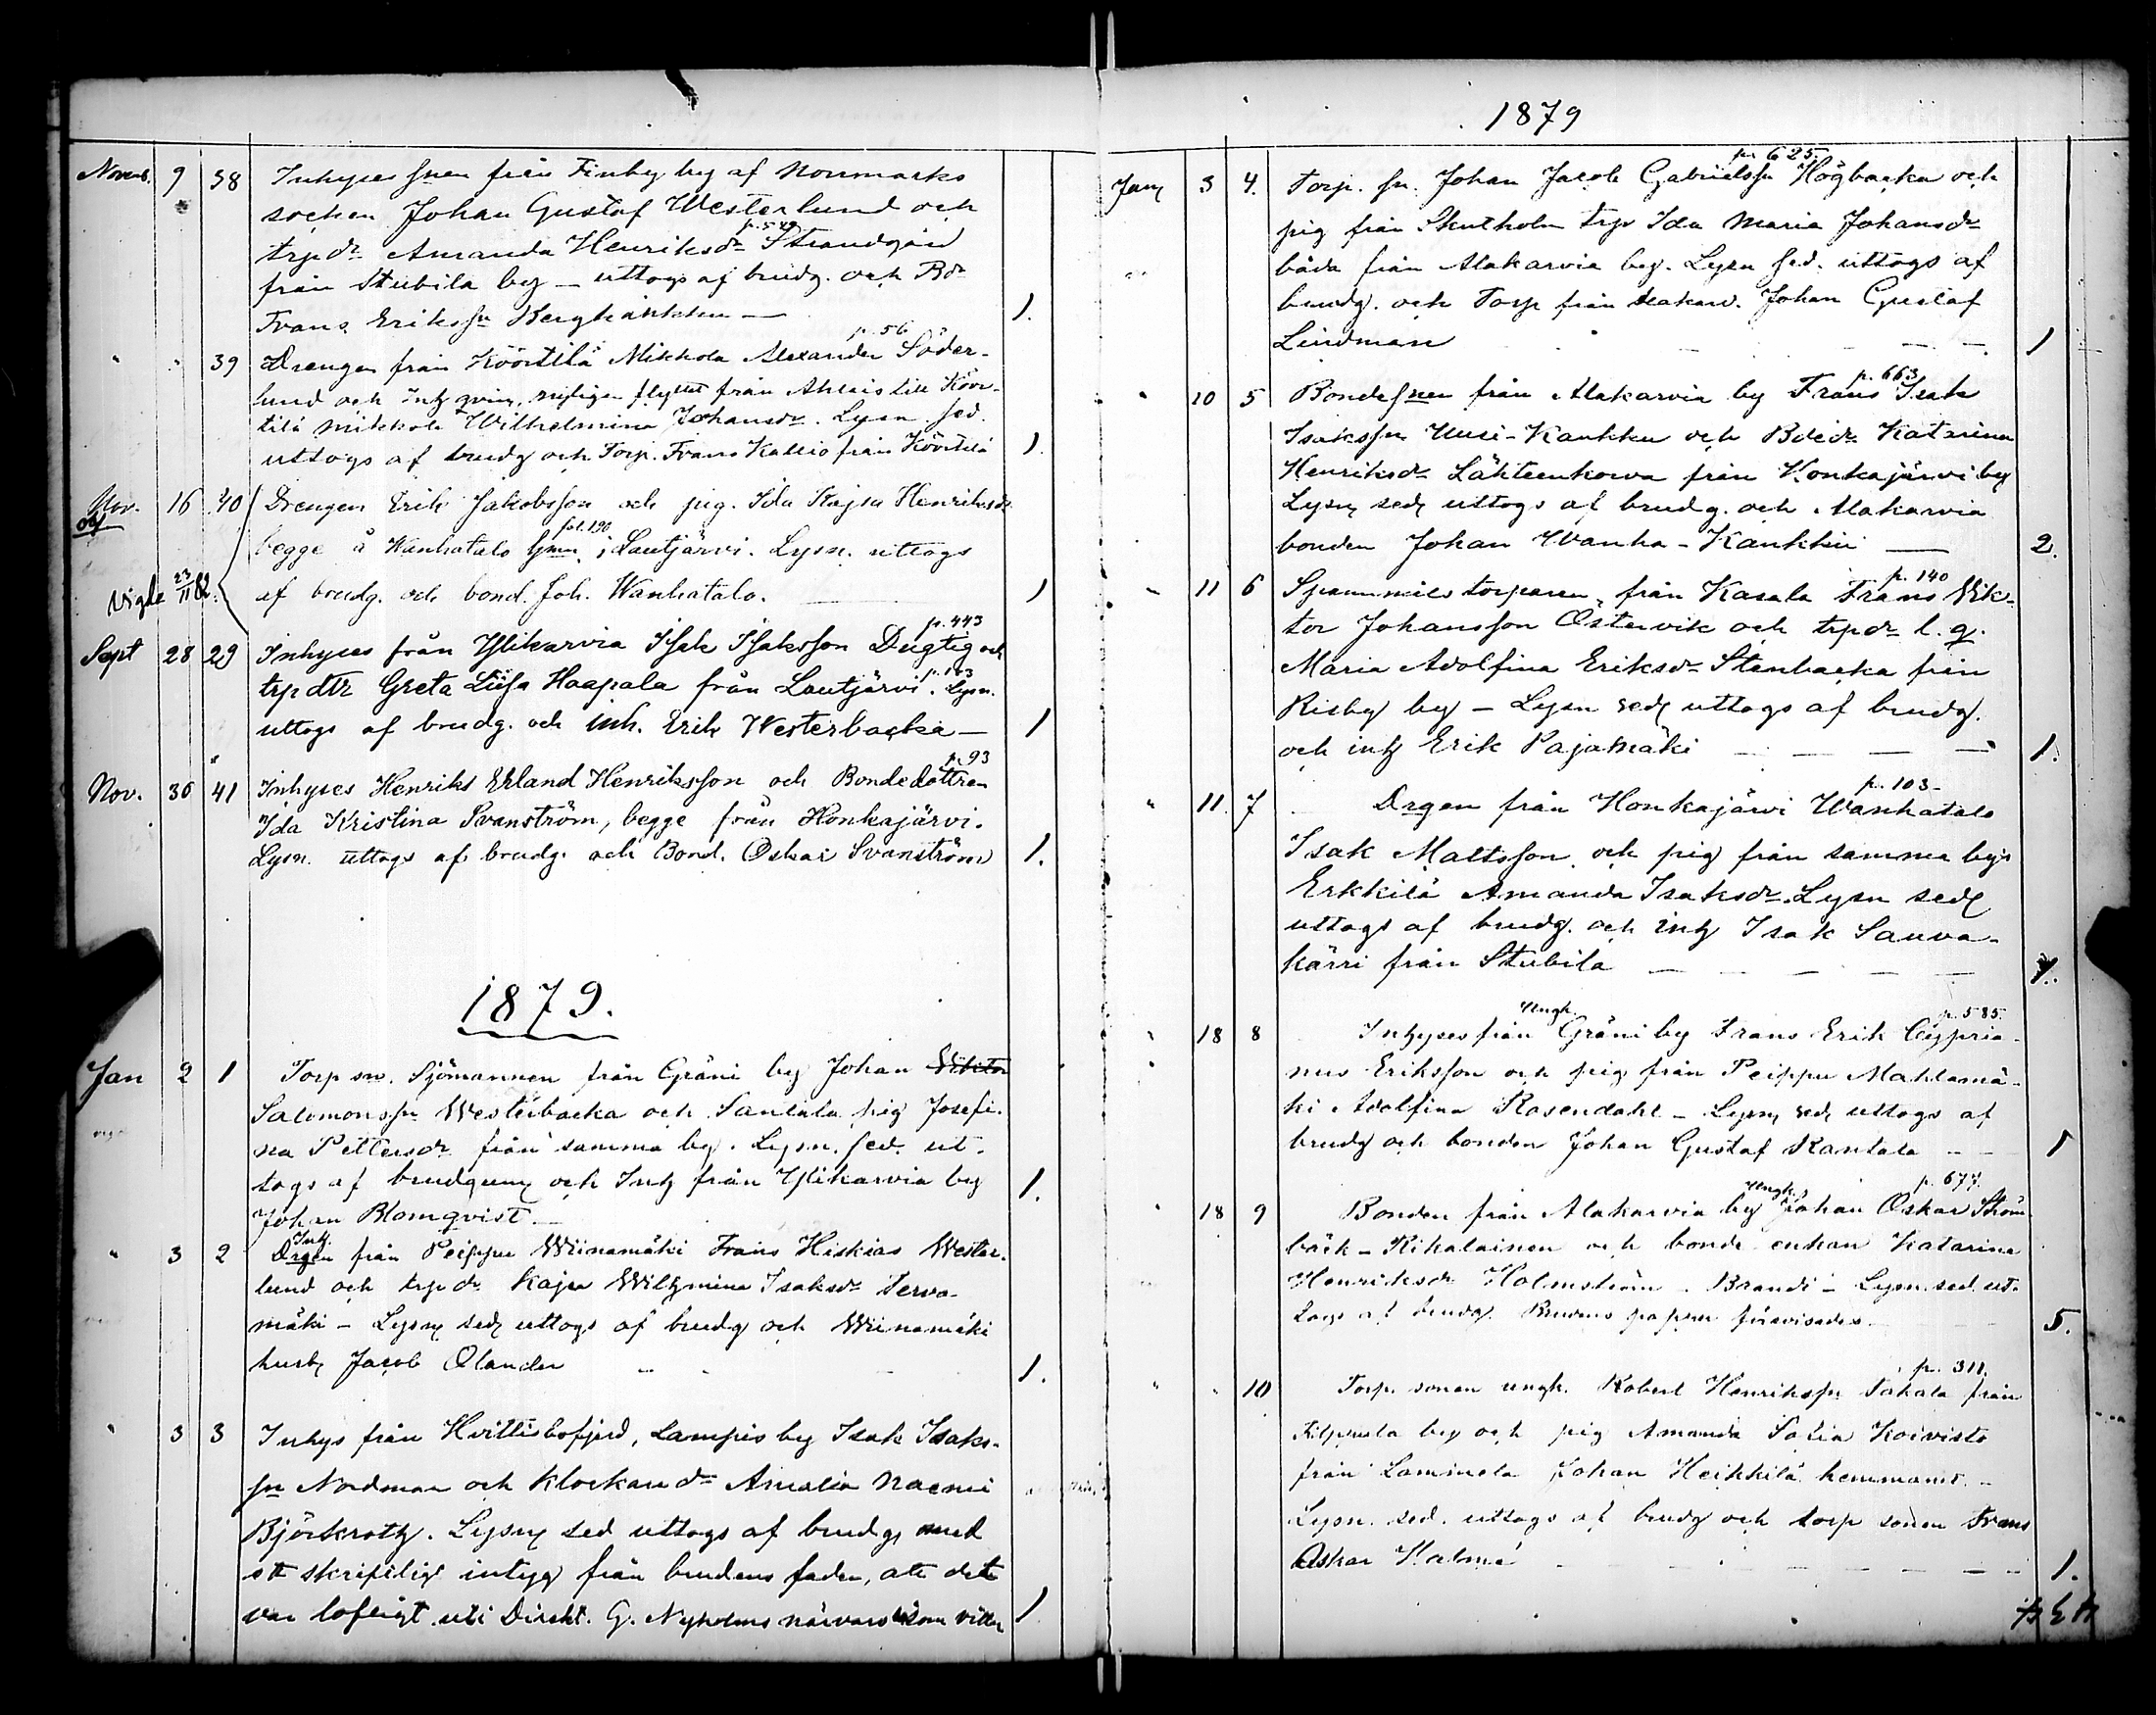 Novemb. 9 38 Inhyses snen från Finby by af Norrmarks
socken Johan Gustaf Westerlund och
p. 549
trpdr Amanda Henriksdr Strandgård
från Stubila by — uttogs af brudg. och Bd
Frans Erikssn Berghänkken — 1.
p. 56
" " 39 Drengen från Köörtilä Mikkola Alexander Söder-
lund och inh flyttat från Ahlais till Köör-
tilä Mikkola Wilhelmina Johansdr. Lysn. sed.
uttogs af brudg och Torp. Frans Kallio från Köörtilä 1.
Nov. 16 40 Drengen Erik Jakobsson och pig. Ida Kajsa Henriksdr
fol. 190
begge å Wanhatalo hmn i Lautjärvi. Lysn. uttogs
Vigde 23/11 82. af brudg. och bond. Joh. Wanhatalo. 1
p. 443
Sept 28 29 Inhyses från Ylikarvia Isak Isaksson Dugtig och
p. 183
trp dtr Greta Liisa Haapala från Lautjärvi. Lysn.
uttogs af brudg. och inh. Erik Westerbacka — 1
p. 93
Nov. 30 41 Inhyses Henriks Erland Henriksson och Bondedottren
Ida Kristina Svanström, begge från Honkajärvi.
Lysn. uttogs af brudg. och Bond. Oskar Svanström 1.
1879.
Jan 2 1 Torp sn. Sjömannen från Gräni by Johan Viktor
Salomonssn Westerbacka och Santala pig Josefi-
na Pettersdr från samma by. Lysn. sed. ut-
togs af brudgum och Inh från Ylikarvia by 1.
Johan Blomqvist. —
Inh.
" 3 2 Drgen från Peippu Wiinamäki Frans Hiskias Wester-
lund och trp dr Kajsa Wilhmina Isaksdr Terva-
mäki — Lysn sed uttogs af brudg och Wiinamäki
husb Jacob Olander — 1.
" 3 3 Inhys från Hvittisbofjerd, Lampis by Isak Isaks-
sn Nordman och Klockaredr Amalia Naemi
Björkroth. Lysn sed uttogs af brudg med
ett skriftligt intyg från brudens fader, att det
var lofligt uti Direkt. G. Nyholms närvaro som vittn 1
1879
p. 625.
Jan 3 4. Torp. sn. Johan Jacob Gabrielssn Högbacka och
pig från Skutholm trp Ida Maria Johansdr
båda från Alakarvia by. Lysn sed. uttogs af
brudg. och Torp från Alakarv. Johan Gustaf
Lindman — 1
p. 663
" 10 5 Bondesnen från Alakarvia by Frans Isak
Isakssn Uusi-Kankku och Bdedr Katarina
Henriksdr Lähteenkorva från Honkajärvi by
Lysn sed uttogs af brudg. och Alakarvia
bonden Johan Wanha-Kankku — 2.
p. 140
" 11 6 Spannmåls torparen från Kasala Frans Vik-
tor Johansson Östervik och trpdr l. q.
Maria Adolfina Eriksdr Stenbacka från
Risby by — Lysn sed uttogs af brudg.
och inh Erik Pajamäki — 1.
p. 103-
" 11. 7 Drgen från Honkajärvi Wanhatalo
Isak Mattsson och pig från samma bys
Erkkilä Amanda Isaksdr. Lysn sed
uttogs af brudg. och inh Isak Sauva-
kärri från Stubila — 1.
Ungk. p. 585.
" 18 8 Inhyses från Gräni by Frans Erik Cypria-
nus Eriksson och pig från Peippu Mahlamä-
ki Adolfina Rosendahl — Lysn sed uttogs af
brudg och bonden Johan Gustaf Rantala — 1
Ungk. p. 677.
" 18 9 Bonden från Alakarvia by Johan Oskar Ström-
bäck - Rikalainen och bonde enkan Katarina
Henriksdr Holmström - Brandi — Lysn sed. ut-
togs af brudg. Brudens papper förevisades. 5.
p. 311.
" " 10 Torp. sonen ungk. Robert Henrikssn Takala från
Filppula by och pig Amanda Sofia Koivisto
från Lamminela Johan Heikkilä hemmanet. —
Lysn. sed. uttogs af brudg och torp sonen Frans
Oskar Halme — 1.